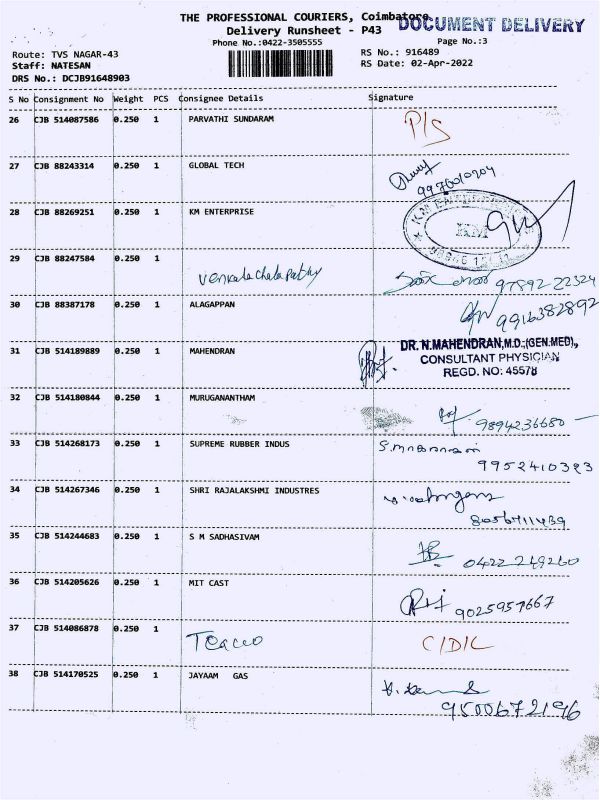 THE PROFESSIONAL COURIERS, Coimbatore
DOCUMENT DELIVERY
Delivery Runsheet - P43
Phone No.:0422-3505555
Page No.:3
Route: TVS NAGAR-43
RS No.: 916489
Staff: NATESAN
RS Date: 02-Apr-2022
DRS No.: DCJB91648903
S No Consignment No Weight PCS Consignee Details Signature
26 CJB 514087586 0.250 1 PARVATHI SUNDARAM P/S
27 CJB 88243314 0.250 1 GLOBAL TECH
28 CJB 88269251 0.250 1 KM ENTERPRISE KM
29 CJB 88247584 0.250 1 Venkatachalapathy 97892 22324
30 CJB 88387178 0.250 1 ALAGAPPAN 9916382892
31 CJB 514189889 0.250 1 MAHENDRAN
DR. N.MAHENDRAN,M.D.,(GEN.MED),
CONSULTANT PHYSICIAN
REGD. NO: 45578
32 CJB 514180844 0.250 1 MURUGANANTHAM 9894236680
33 CJB 514268173 0.250 1 SUPREME RUBBER INDUS
9952410323
34 CJB 514267346 0.250 1 SHRI RAJALAKSHMI INDUSTRES
8056711439
35 CJB 514244683 0.250 1 S M SADHASIVAM 0422 249260
36 CJB 514205626 0.250 1 MIT CAST 9025957667
37 CJB 514086878 0.250 1 Teacco C/D/L
38 CJB 514170525 0.250 1 JAYAAM GAS
9500672196